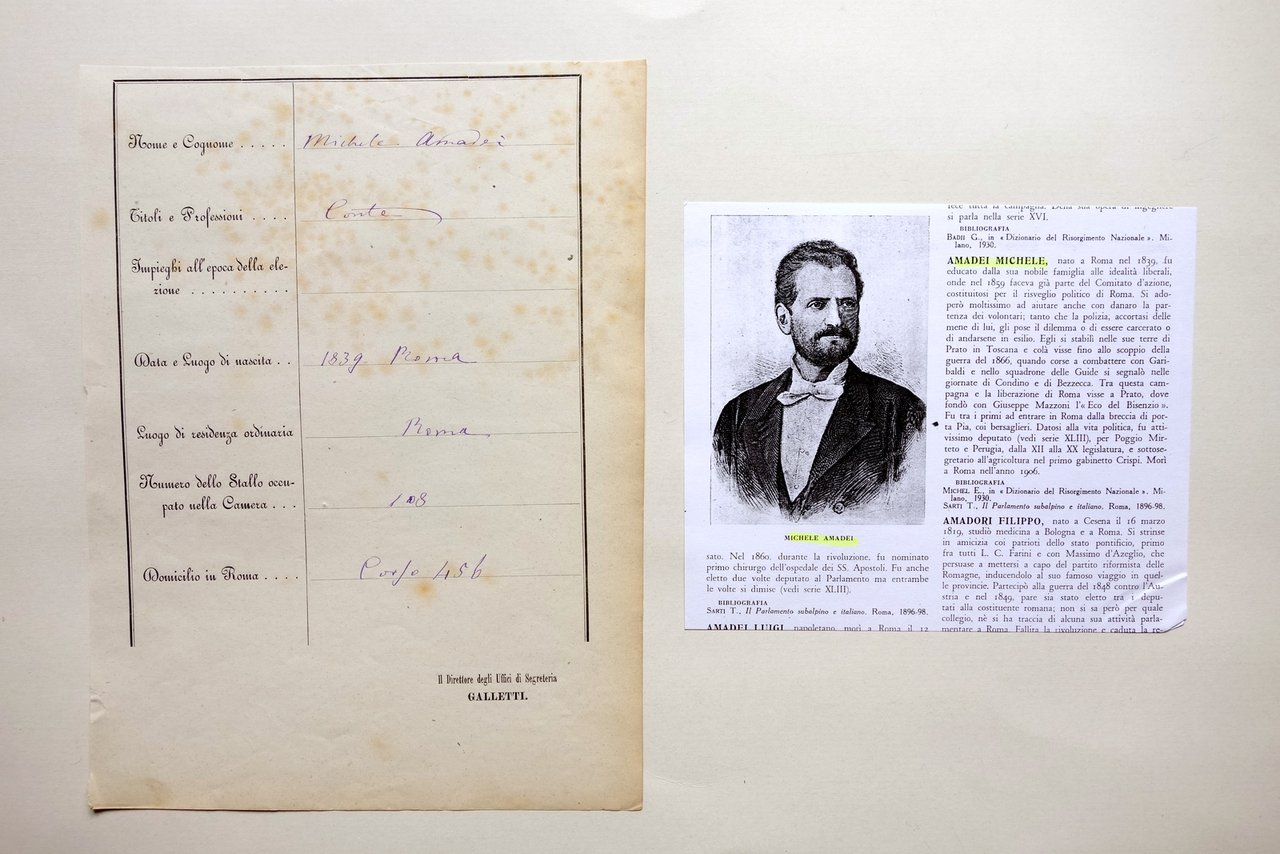 Nome e Cognome . . . . . Michele Amadei
Titoli e Professioni . . . . Conte
Impieghi all'epoca della ele-
zione . . . . . . . . . .
Data e Luogo di nascita . . 1839 Roma
Luogo di residenza ordinaria Roma.
Numero dello Stallo occu-
pato nella Camera . . . 108
Domicilio in Roma . . . . Corso 456
Il Direttore degli Uffici di Segreteria
GALLETTI.
MICHELE AMADEI
sato. Nel 1860, durante la rivoluzione, fu nominato
primo chirurgo dell'ospedale dei SS. Apostoli. Fu anche
eletto due volte deputato al Parlamento ma entrambe
le volte si dimise (vedi serie XLIII).
BIBLIOGRAFIA
SARTI T., Il Parlamento subalpino e italiano. Roma, 1896-98.
AMADEI LUIGI, napoletano, morì a Roma il 12
fece tutta la campagna. Della sua opera di ingegnere
si parla nella serie XVI.
BIBLIOGRAFIA
BADII G., in « Dizionario del Risorgimento Nazionale ». Mi-
lano, 1930.
AMADEI MICHELE, nato a Roma nel 1839, fu
educato dalla sua nobile famiglia alle idealità liberali,
onde nel 1859 faceva già parte del Comitato d'azione,
costituitosi per il risveglio politico di Roma. Si ado-
però moltissimo ad aiutare anche con danaro la par-
tenza dei volontari; tanto che la polizia, accortasi delle
mene di lui, gli pose il dilemma o di essere carcerato o
di andarsene in esilio. Egli si stabilì nelle sue terre di
Prato in Toscana e colà visse fino allo scoppio della
guerra del 1866, quando corse a combattere con Gari-
baldi e nello squadrone delle Guide si segnalò nelle
giornate di Condino e di Bezzecca. Tra questa cam-
pagna e la liberazione di Roma visse a Prato, dove
fondò con Giuseppe Mazzoni l'« Eco del Bisenzio ».
Fu tra i primi ad entrare in Roma dalla breccia di por-
ta Pia, coi bersaglieri. Datosi alla vita politica, fu atti-
vissimo deputato (vedi serie XLIII), per Poggio Mir-
teto e Perugia, dalla XII alla XX legislatura, e sottose-
gretario all'agricoltura nel primo gabinetto Crispi. Morì
a Roma nell'anno 1906.
BIBLIOGRAFIA
MICHEL E., in « Dizionario del Risorgimento Nazionale ». Mi-
lano, 1930.
SARTI T., Il Parlamento subalpino e italiano. Roma, 1896-98.
AMADORI FILIPPO, nato a Cesena il 16 marzo
1819, studiò medicina a Bologna e a Roma. Si strinse
in amicizia coi patrioti dello stato pontificio, primo
fra tutti L. C. Farini e con Massimo d'Azeglio, che
persuase a mettersi a capo del partito riformista delle
Romagne, inducendolo al suo famoso viaggio in quel-
le provincie. Partecipò alla guerra del 1848 contro l'Au-
stria e nel 1849, pare sia stato eletto tra i depu-
tati alla costituente romana; non si sa però per quale
collegio, nè si ha traccia di alcuna sua attività parla-
mentare a Roma. Fallita la rivoluzione e caduta la re-